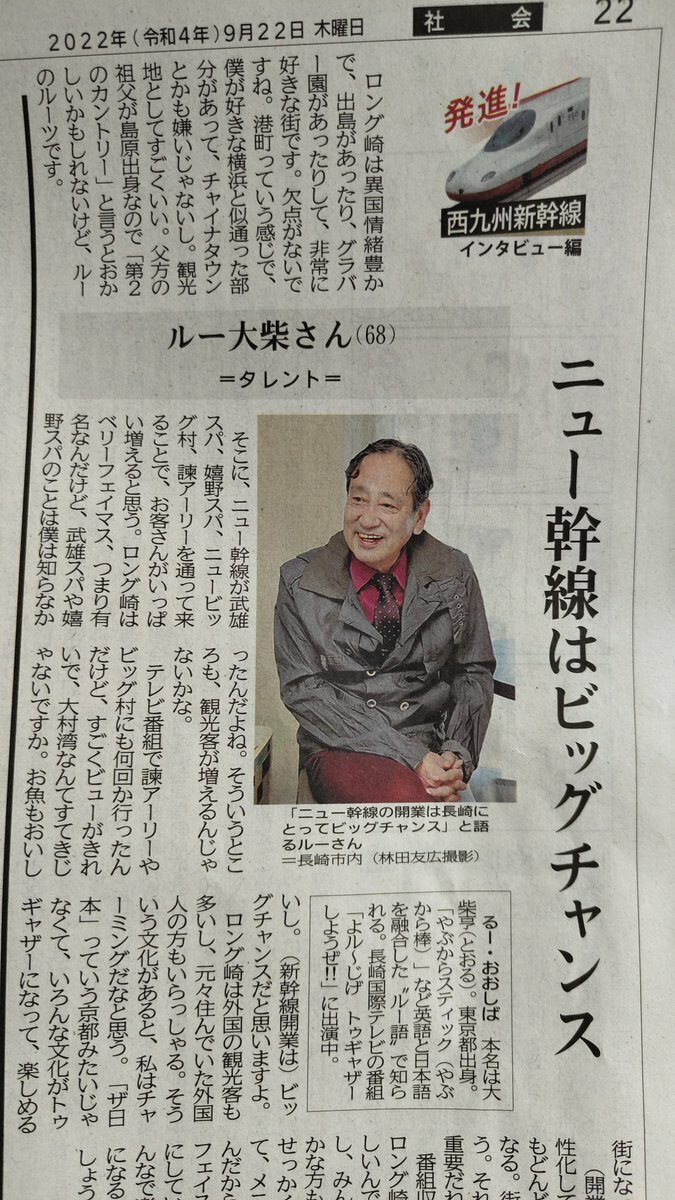 2022年(令和4年)9月22日 木曜日
社会
22
発進!
西九州新幹線
インタビュー編
ニュー幹線はビッグチャンス
ルー大柴さん(68)
=タレント=
ロング崎は異国情緒豊か
で、出島があったり、グラバ
ー園があったりして、非常に
好きな街です。欠点がないで
すね。港町っていう感じで、
僕が好きな横浜と似通った部
分があって、チャイナタウン
とかも嫌いじゃないし。観光
地としてすごくいい。父方の
祖父が島原出身なので「第2
のカントリー」と言うとおか
しいかもしれないけど、ルー
のルーツです。
そこに、ニュー幹線が武雄
スパ、嬉野スパ、ニュービッ
グ村、諫アーリーを通って来
ることで、お客さんがいっぱ
い増えると思う。ロング崎は
ベリーフェイマス、つまり有
名なんだけど、武雄スパや嬉
野スパのことは僕は知らなか
ったんだよね。そういうとこ
ろも、観光客が増えるんじゃ
ないかな。
テレビ番組で諫アーリーや
ビッグ村にも何回か行ったん
だけど、すごくビューがきれ
いで、大村湾なんてすてきじ
ゃないですか。お魚もおいし
いし。(新幹線開業は)ビッ
グチャンスだと思いますよ。
ロング崎は外国の観光客も
多いし、元々住んでいた外国
人の方もいらっしゃる。そう
いう文化があると、私はチャ
ーミングだなと思う。「ザ日
本」っていう京都みたいじゃ
なくて、いろんな文化がトゥ
ギャザーになって、楽しめる
「ニュー幹線の開業は長崎に
とってビッグチャンス」と語
るルーさん
=長崎市内(林田友広撮影)
るー・おおしば 本名は大
柴亨(とおる)。東京都出身。
「やぶからスティック(やぶ
から棒)」など英語と日本語
を融合した〝ルー語〟で知ら
れる。長崎国際テレビの番組
「よル～じげ トゥギャザー
しようぜ!!」に出演中。
街にな
(開業
性化し
もどん
なる。街
う。それ
重要だね
番組収
ロング崎
しいんで
し、みん
かな方も
せっかく
て、メニ
んだから
フェイス
にしてい
んなで
になる
しょう